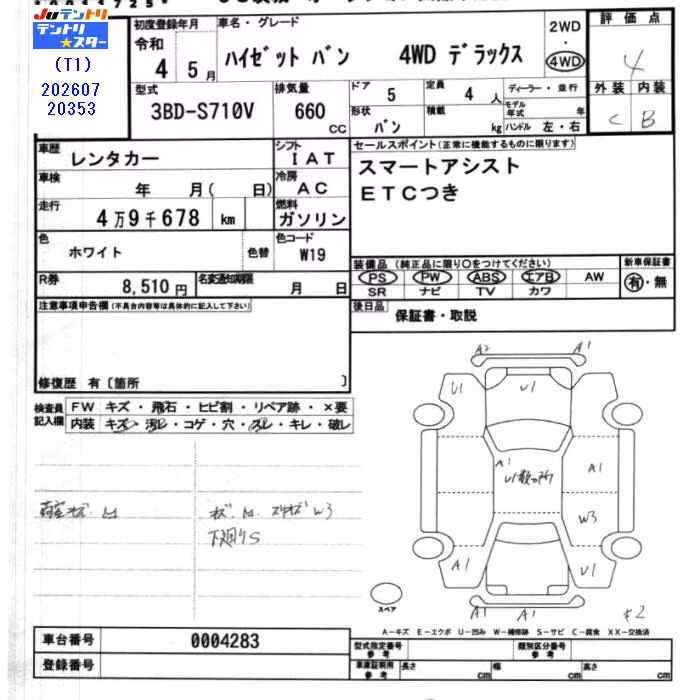 JUテントリ
テントリ★スター
(T1)
202607
20353
初度登録年月
令和
4 5月
車名・グレード
ハイゼット バン 4WD デラックス
2WD
・
4WD
評価点
4
外装 内装
C B
型式
3BD-S710V
排気量
660 CC
ドア
5
形状
バン
定員
4 人
積載
kg
ディーラー・並行
モデル年式 年
ハンドル 左・右
車歴
レンタカー
シフト
IAT
車検
年 月( 日)
冷房
AC
走行
4万9千678 km
燃料
ガソリン
色
ホワイト
色替
色コード
W19
R券
8,510円
名変通知期限
月 日
セールスポイント(正常に機能するものに限ります)
スマートアシスト
ETCつき
装備品(純正品に限り〇をつけてください)
PS PW ABS エアB AW
SR ナビ TV カワ
新車保証書
有・無
後日品
保証書・取説
注意事項申告欄(不具合内容等は具体的に記入して下さい)
修復歴 有〔箇所 〕
検査員記入欄
FW キズ・飛石・ヒビ割・リペア跡・×要
内装 キズ・汚れ・コゲ・穴・スレ・キレ・破レ
W3
下廻りS
A2 A1
U1 U1
A1 A1
W3
A1 U1
A1 A1
スペア
A−キズ E−エクボ U−凹み W−補修跡 S−サビ C−腐食 XX−交換済
車台番号
0004283
登録番号
型式指定番号
参考
類別区分番号
参考
車庫証明用
参考
長さ cm 幅 cm 高さ cm